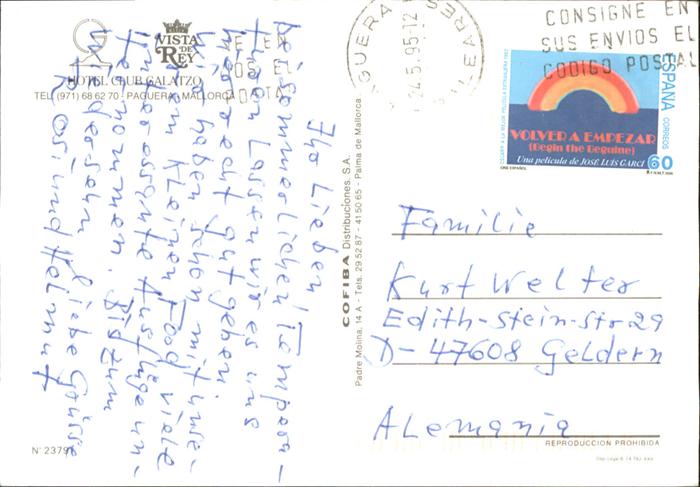 VISTA DE REY
HOTEL CLUB GALATZO
TEL (971) 68 62 70 - PAGUERA - MALLORCA
Ihr Lieben!
bei sommerlichen Tempera-
turen lassen wir es uns
hier recht gut gehen.
Wir haben schon mit unse-
rem kleinen Ford viele
interessante Ausflüge un-
ternommen. Bis zum
Wiedersehn liebe Grüsse
Rosi und Helmut
Nº 2379
COFIBA Distribuciones, S.A.
Padre Molina, 14 A - Tels. 29 52 87 - 41 50 65 - Palma de Mallorca
PAGUERA
BALEARES
24.5.95-12
CONSIGNE EN
SUS ENVIOS EL
CODIGO POSTAL
ESPAÑA
CORREOS
OSCAR A LA MEJOR PELICULA EXTRANJERA 1982
VOLVER A EMPEZAR
(Begin the Beguine)
Una película de JOSÉ LUIS GARCI
CINE ESPAÑOL
60
Familie
Kurt Welter
Edith-Stein-Str 29
D-47608 Geldern
Alemania
REPRODUCCION PROHIBIDA